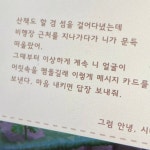 산책도 할 겸 섬을 걸어다녔는데
비행장 근처를 지나가다가 니가 문득
떠올랐어.
그때부터 이상하게 계속 니 얼굴이
머릿속을 맴돌길래 이렇게 메시지 카드를
보낸다. 마음 내키면 답장 보내줘.
그럼 안녕,